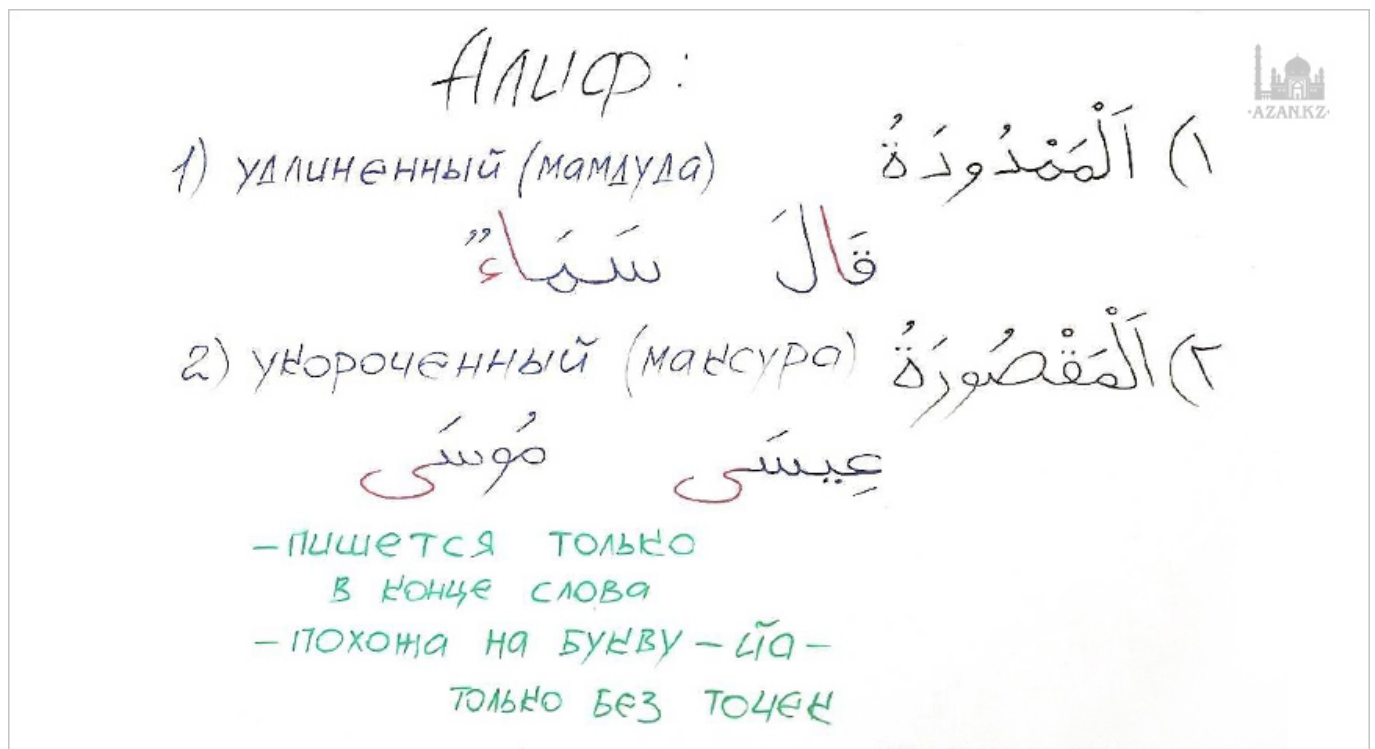 Алиф:
·AZAN.KZ·
1) удлиненный (мамдуда) ١) اَلْمَمْدُودَةُ
قَالَ سَمَاءٌ
2) укороченный (максура) ٢) اَلْمَقْصُورَةُ
عِيسَى مُوسَى
– пишется только
в конце слова
– похожа на букву – йа –
только без точек